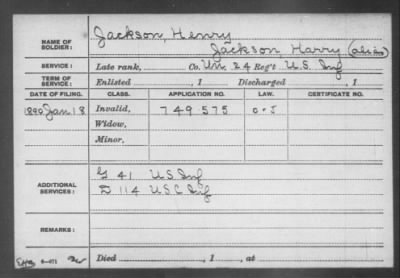 NAME OF SOLDIER: Jackson, Henry
Jackson, Harry (alias)
SERVICE: Late rank, Co. Un. 24 Reg't U.S. Inf
TERM OF SERVICE: Enlisted , 1 Discharged , 1
DATE OF FILING. CLASS. APPLICATION NO. LAW. CERTIFICATE NO.
1890 Jan 18 Invalid, 749 575
Widow,
Minor,
ADDITIONAL SERVICES: G 41 U.S. Inf
D 114 U.S.C. Inf
REMARKS:
Died , 1 , at